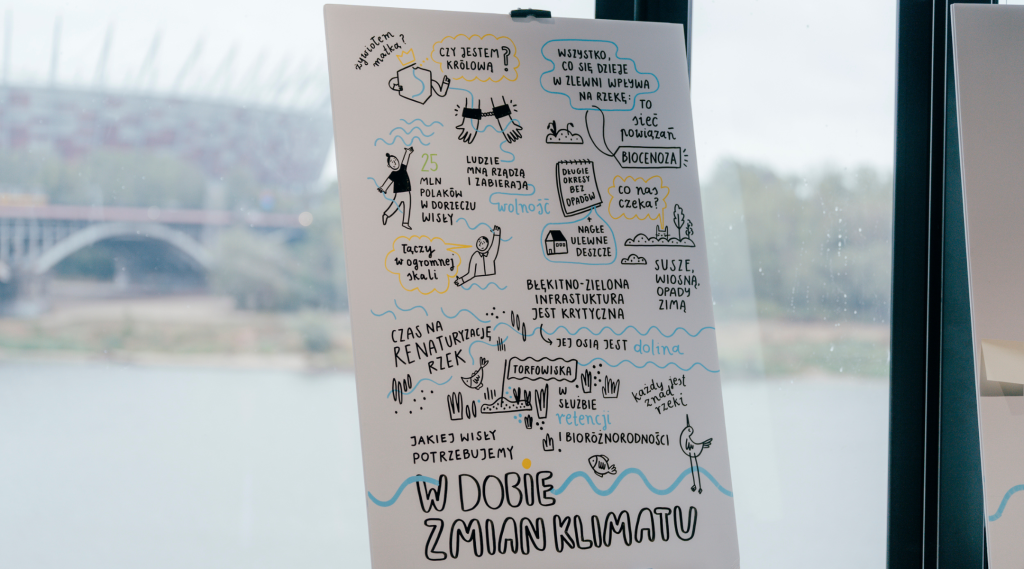 żywiołem
matką?
CZY JESTEM
KRÓLOWĄ?
WSZYSTKO,
CO SIĘ DZIEJE
W ZLEWNI WPŁYWA
NA RZEKĘ:
TO
sieć
powiązań
BIOCENOZA
25
MLN
POLAKÓW
W DORZECZU
WISŁY
LUDZIE
MNĄ RZĄDZĄ
I ZABIERAJĄ
wolność
DŁUGIE
OKRESY
BEZ
OPADÓW
co nas
czeka?
NAGŁE
ULEWNE
DESZCZE
Łączy
w ogromnej
skali
SUSZE,
WIOSNĄ,
OPADY
ZIMĄ
BŁĘKITNO-ZIELONA
INFRASTUKTURA
JEST KRYTYCZNA
JEJ OSIĄ JEST dolina
CZAS NA
RENATURYZACJĘ
RZEK
TORFOWISKA
W
SŁUŻBIE
retencji
I BIORÓŻNORODNOŚCI
każdy jest
znad
rzeki
JAKIEJ WISŁY
POTRZEBUJEMY
W DOBIE
ZMIAN KLIMATU